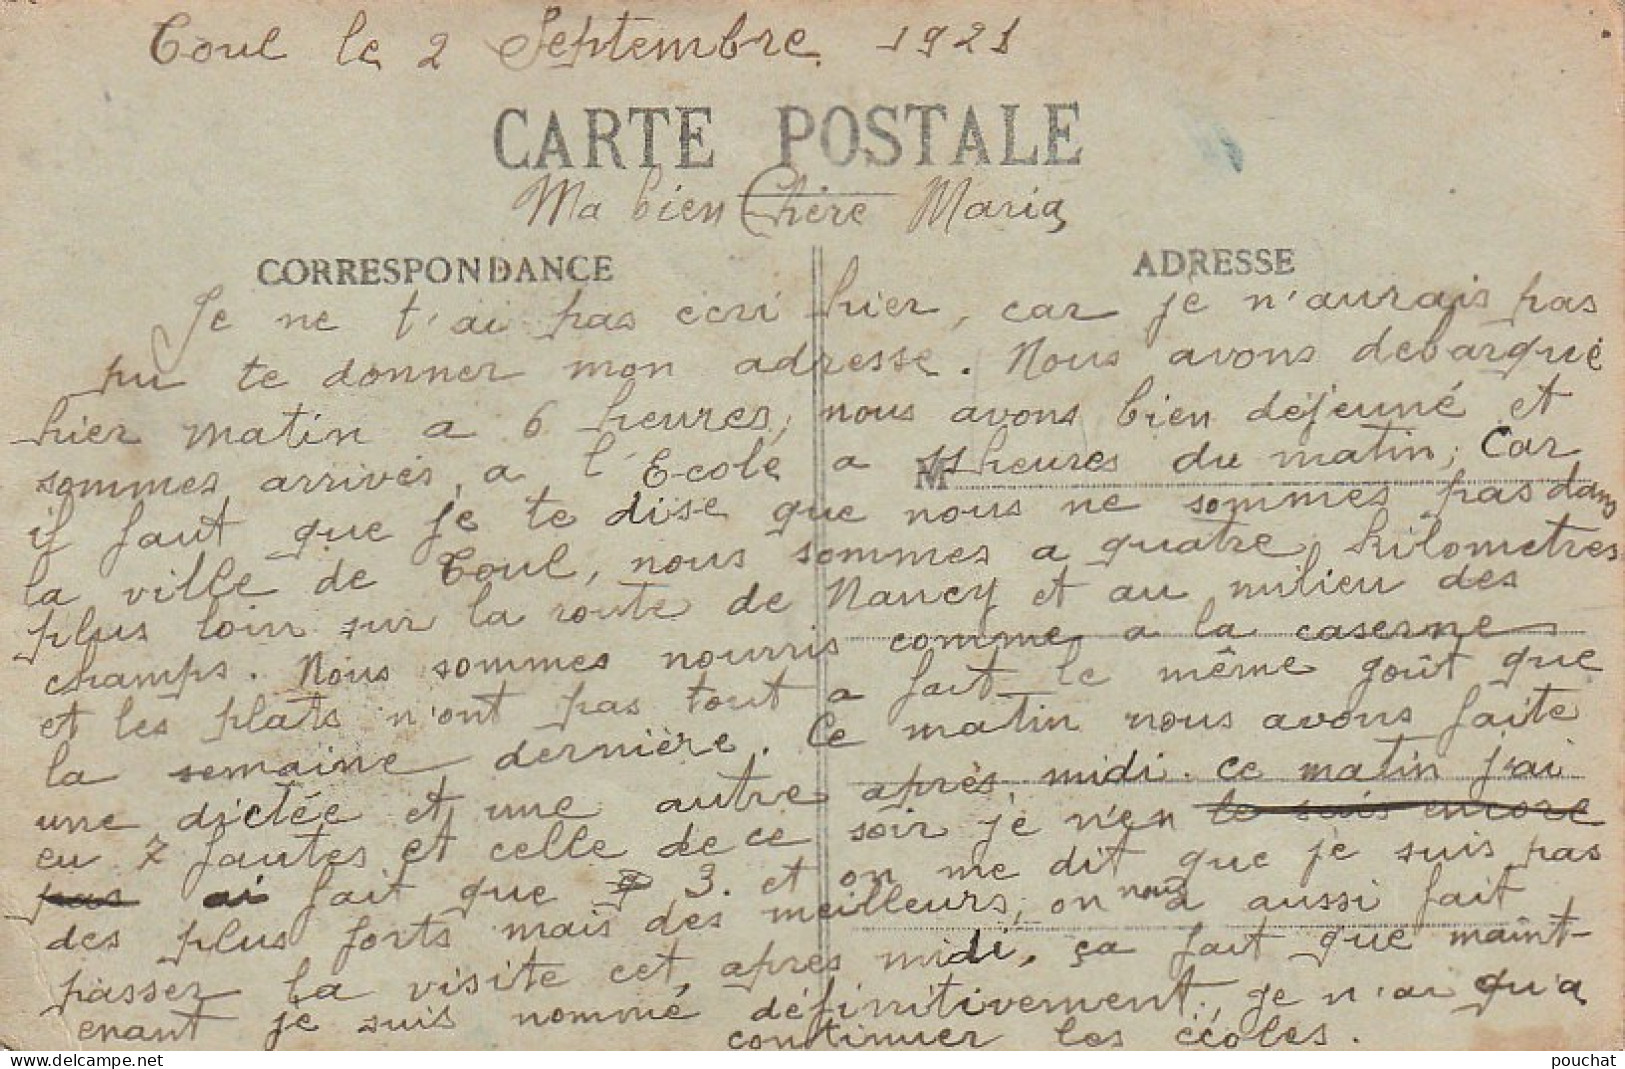 Toul le 2 Septembre 1921
CARTE POSTALE
Ma bien Chère Maria
CORRESPONDANCE
ADRESSE
Je ne t'ai pas ecri hier, car je n'aurais pas
pu te donner mon adresse. Nous avons debarqué
hier matin a 6 heures, nous avons bien déjeuné et
sommes arrivés, a l'Ecole a 11 heures du matin, Car
M
il faut que je te dise que nous ne sommes pas dans
la ville de Toul, nous sommes a quatre kilometres
plus loin sur la route de Nancy et au milieu des
champs. Nous sommes nourris comme a la caserne
et les plats n'ont pas tout a fait le même goût que
la semaine dernière. Ce matin nous avons faite
une dictée et une autre après midi. ce matin j'ai
eu 7 fautes et celle de ce soir je n'en le sais encore
pas ai fait que 3. et on me dit que je suis pas
des plus forts mais des meilleurs, on nous a aussi fait
passer la visite cet, après midi, ça fait que maint-
enant je suis nommé définitivement, je n'ai qu'a
continuer les écoles.
pouchat